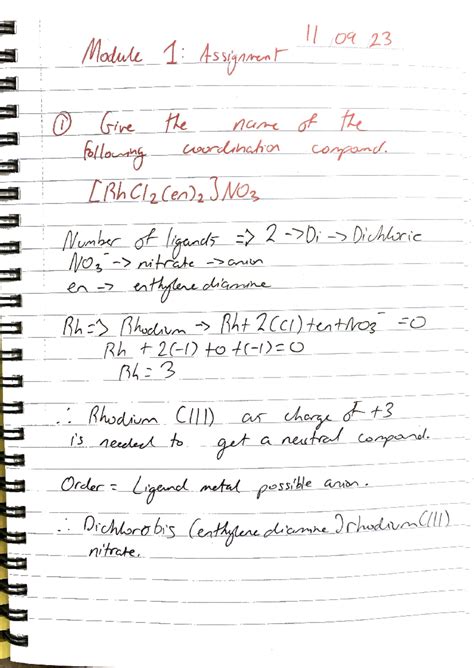 11 09 23
Module 1: Assignment
① Give the name of the
following coordination compound.
[RhCl₂(en)₂]NO₃
Number of ligands => 2 -> Di -> Dichloric
NO₃⁻ -> nitrate -> anion
en -> enthylene diamine
Rh => Rhodium -> Rh + 2(Cl) + en + NO₃⁻ = 0
Rh + 2(-1) + 0 + (-1) = 0
Rh = 3
∴ Rhodium (III) as charge of +3
is needed to get a neutral compound.
Order = Ligand metal possible anion.
∴ Dichlorobis (enthylene diamine) rhodium (III)
nitrate.